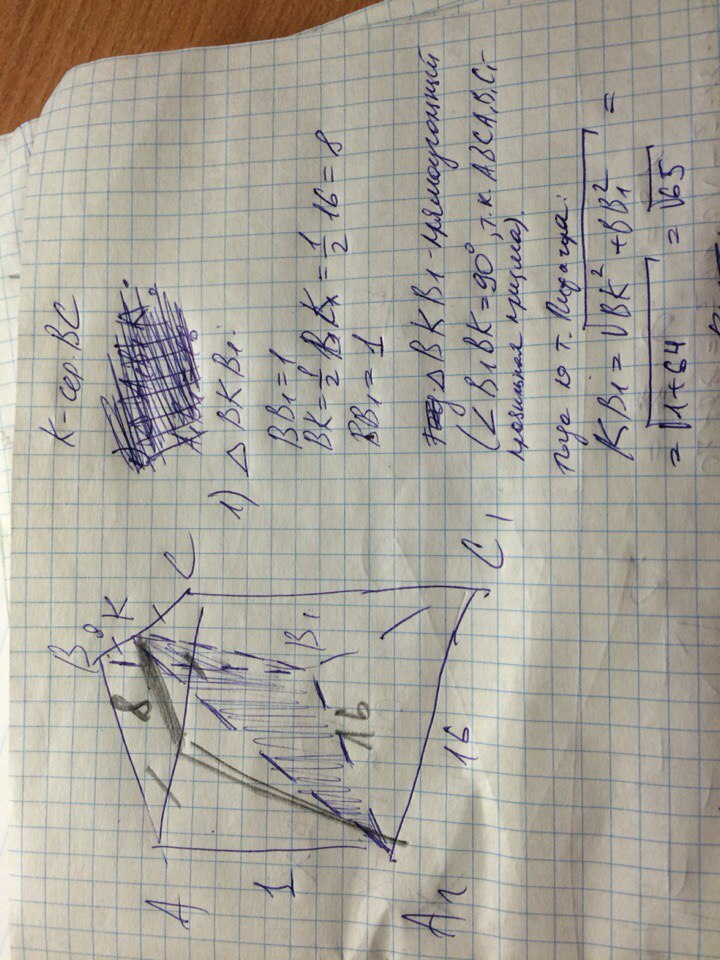 K - сер. BC
1) △ BKB₁:
BB₁ = 1
BK = 1/2 BK = 1/2 16 = 8
BB₁ = 1
△ BKB₁ - прямоугольный
(∠B₁BK = 90°, т.к. ABCA₁B₁C₁ -
правильная призма).
тогда по т. Пифагора:
KB₁ = √BK² + BB₁² =
= √1 + 64 = √65
B
K
C
8
A
B₁
1
16
A₁
16
C₁